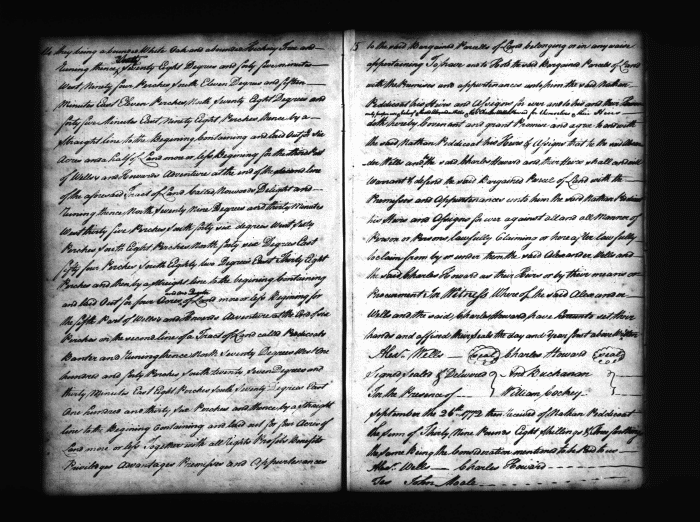 they being a bounded White Oak and a bounded Hickory Tree and
Running thence South Seventy Eight Degrees and forty five minutes
West Ninety four Perches South Eleven Degrees and fifteen
Minutes East Eleven Perches North Seventy Eight Degrees and
forty five Minutes East Ninety Eight Perches thence by a
Straight line to the Beginning Containing and laid out for Six
Acres and a half of Land more or less Beginning for the third Part
of Wells and Adventure at the end of the second line
of the aforesaid Tract of Land Called Howards Delight and
Running thence North Seventy Nine Degrees and thirty Minutes
West thirty five Perches North forty six degrees West fifty
Perches South Eight Perches North forty six Degrees East
fifty four Perches South Eighty two Degrees East thirty Eight
Perches and then by a straight line to the beginning Containing
and laid out for four Acres of Land more or less Beginning for
the fifth Part of Wells and Adventure at the End of six
Perches on the second line of a Tract of Land called
and Running thence North Seventy Degrees West One
hundred and forty Perches South Seventy Seven Degrees and
thirty Minutes East Eight Perches South Seventy Degrees East
One hundred and thirty six Perches and thence by a Straight
line to the Beginning Containing and laid out for four Acres of
Land more or less Together with all Rights Profits Benefits
Privileges Advantages Premisses and Appurtenances
to the said Bargained Parcells of Land belonging or in any wise
appertaining To have and to Hold the said Bargained Parcels of Land
with the Premises and appurtenances unto him the said Nathan
his Heirs and Assigns for ever
doth hereby Covenant and grant Promise and agree to and with
the said Nathan his Heirs & Assigns that he the said Alexan
der Wells and the said Charles Howard and their Heirs shall and will
Warrant & defend the said Bargained Parcels of Land with the
Premisses and Appurtenances unto him the said Nathan
his Heirs and Assigns for ever against all and all Manner of
Person or Persons, lawfully Claiming or hereafter lawfully
to claim from by or under them the said Alexander Wells and
the said Charles Howard or their Heirs or by their means or
Procurement In Witness Whereof the said Alexander
Wells and the said Charles Howard, have hereunto set their
hands and affixed their Seals the day and Year first above Written
Alexr. Wells (Seal) Charles Howard (Seal)
Signed Sealed & Delivered And Buchanan
In the Presence of William
September the 26th. 1772 then received of Nathan
the sum of Thirty Nine Pounds Eight Shillings &
the same being the Consideration mentioned to be Paid to us
Alexr. Wells Charles Howard
Tes John Moale